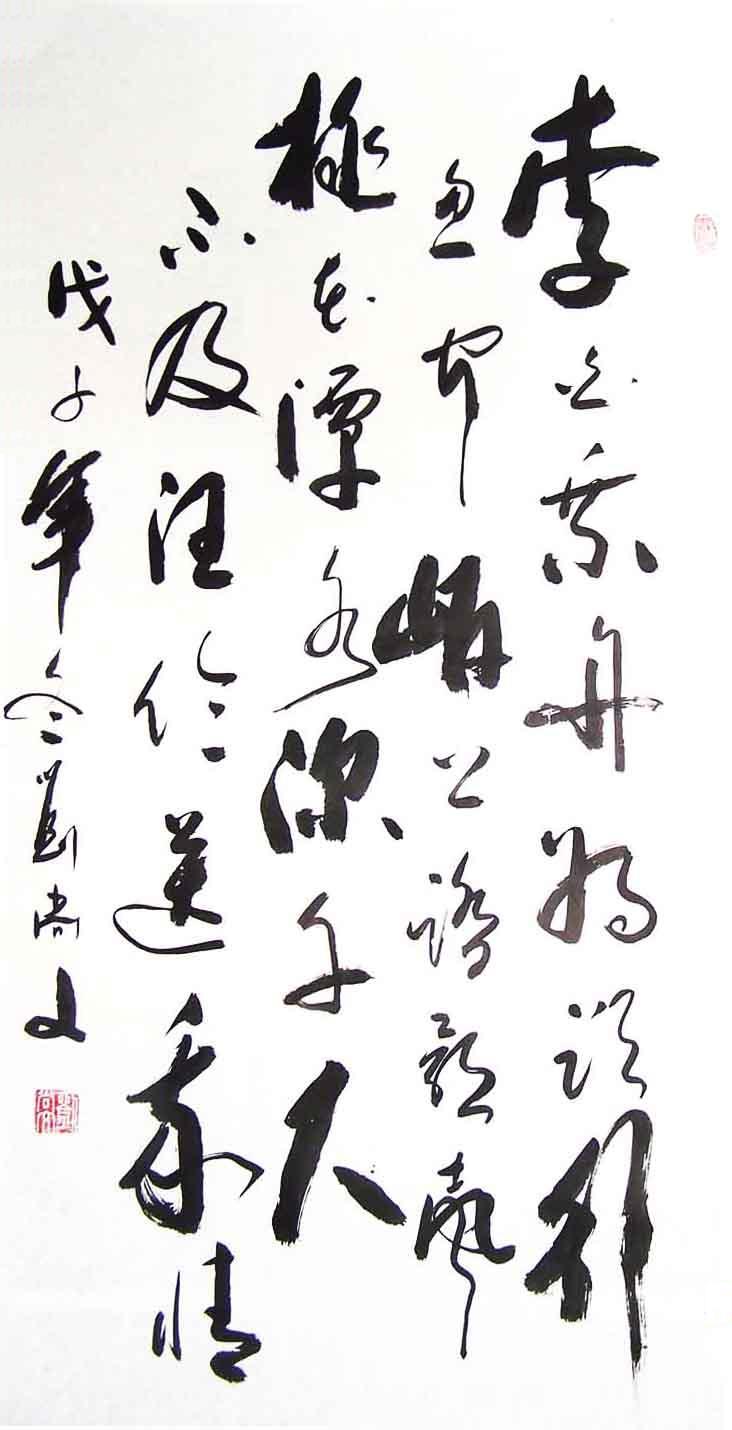 李白乘舟将欲行
忽聞岸上踏歌聲
桃花潭水深千尺
不及汪倫送我情
戊子年冬劉尚文